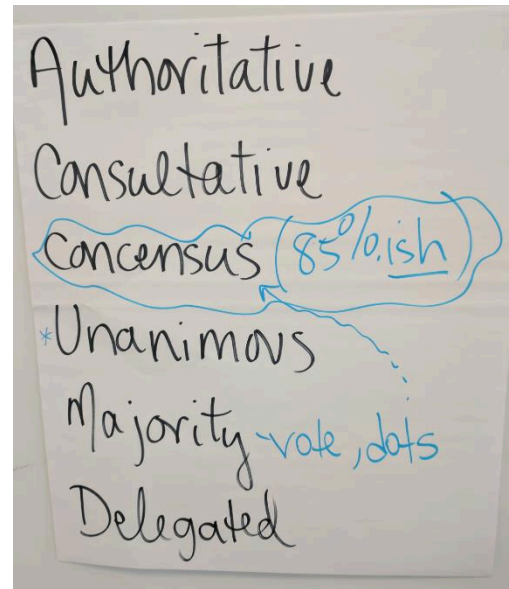 Authoritative
Consultative
Concensus (85%.ish)
*Unanimous
Majority - vote, dots
Delegated